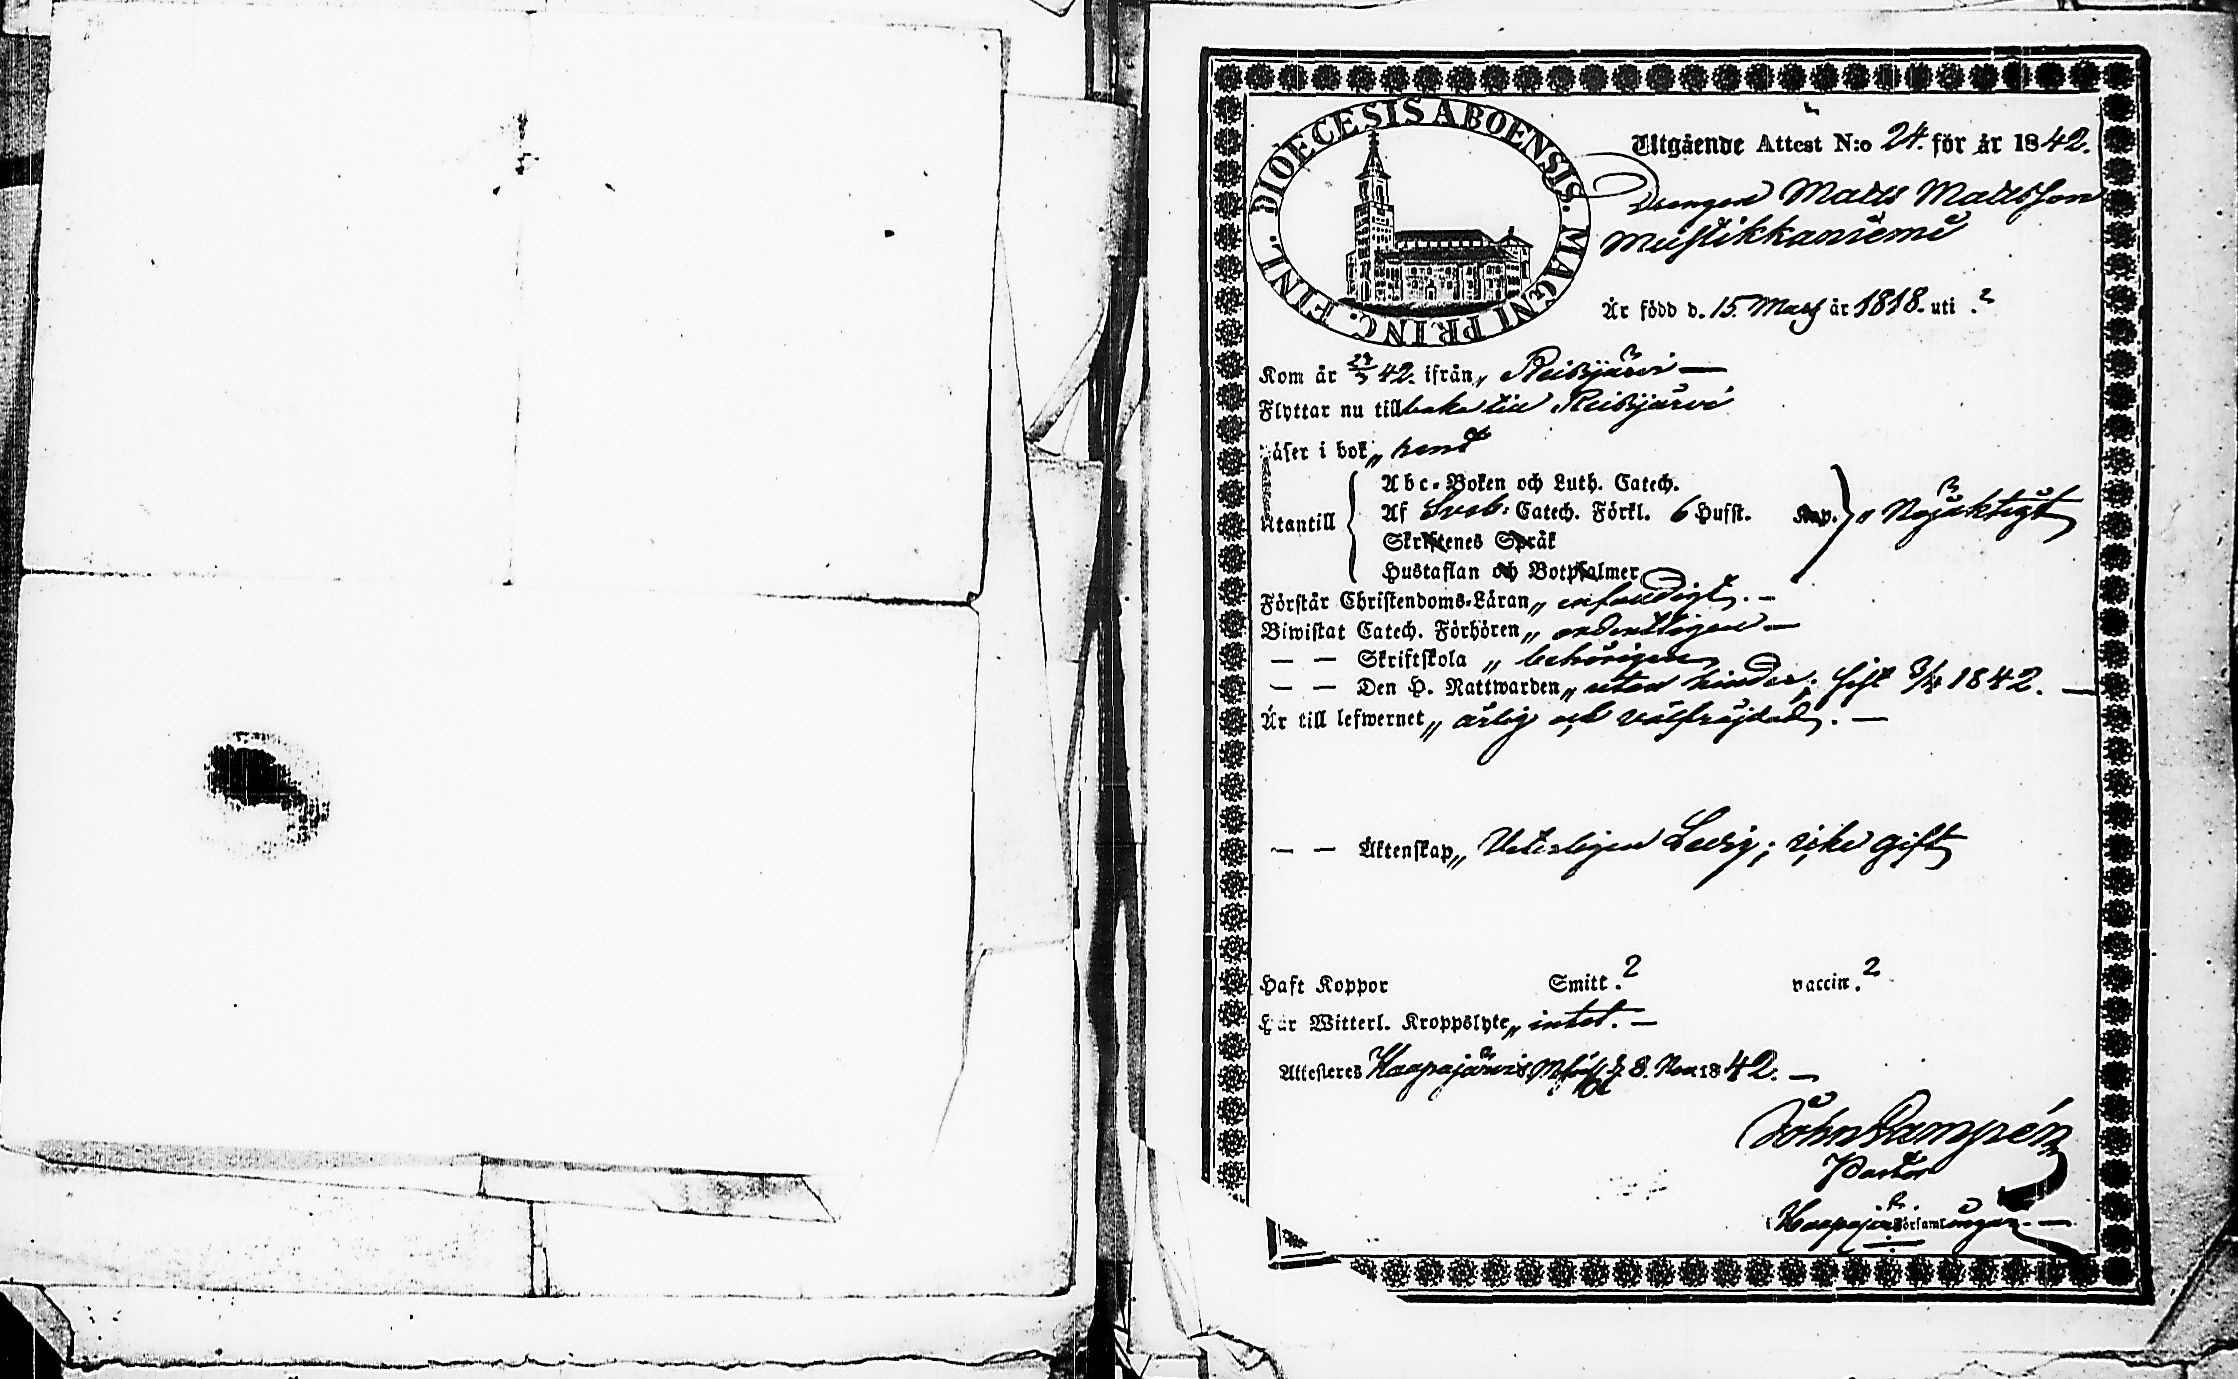 DIOECESIS ABOENSIS. MAGNI PRINC. FINL.
Utgående Attest N:o 24. för år 1842.
Drengen Matts Mattsson
Mustikkaniemi
Är född d. 15. Mars år 1818. uti ?
Kom år 42. ifrån „ Reisjärvi —
Flyttar nu tillbaka till Reisjärvi
äser i bok „ rent
Utantill
Abc-Boken och Luth. Catech.
Af Sveb: Catech. Förkl. 6 Husst. Kap. „ Nöjaktigt
Skriftenes Språk
Hustaflan och Botpsalmer
Förstår Christendoms-Läran „ enfaldigt. —
Biwistat Catech. Förhören „ ordentligen —
— — Skriftskola „ behörigen
— — Den H. Nattwarden „ utan hinder; sist 3/4 1842. —
Är till lefwernet „ ärlig och välfrejdad. —
— — Äktenskap „ Veterligen Ledig; icke gift
Haft Koppor Smitt. ? vaccin. ?
Har Witterl. Kroppslyte „ intet. —
Attesteres Haapajärvis d. 8. Nov 1842. —
Joh Lampén
Pastor
i Haapajärvi församlingar. —